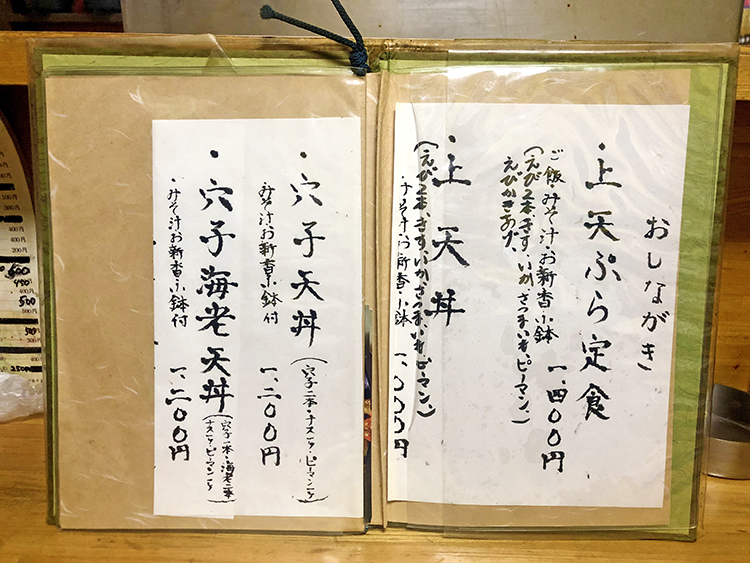 おしながき
・上天ぷら定食
ご飯・みそ汁・お新香・小鉢 一、四〇〇円
(えび二本、きす、いか、さつまいも、ピーマン、
えびかきあげ、
・上天丼
(えび二本、きす、いか、さつまいも、ピーマン、)
・みそ汁・お新香・小鉢 一、〇〇〇円
・穴子天丼 (穴子二本・ナス二ケ・ピーマン二ケ)
みそ汁お新香小鉢付 一、二〇〇円
・穴子海老天丼 (穴子一本・海老二本
ナス二ケ・ピーマン二ケ)
・みそ汁お新香小鉢付 一、二〇〇円